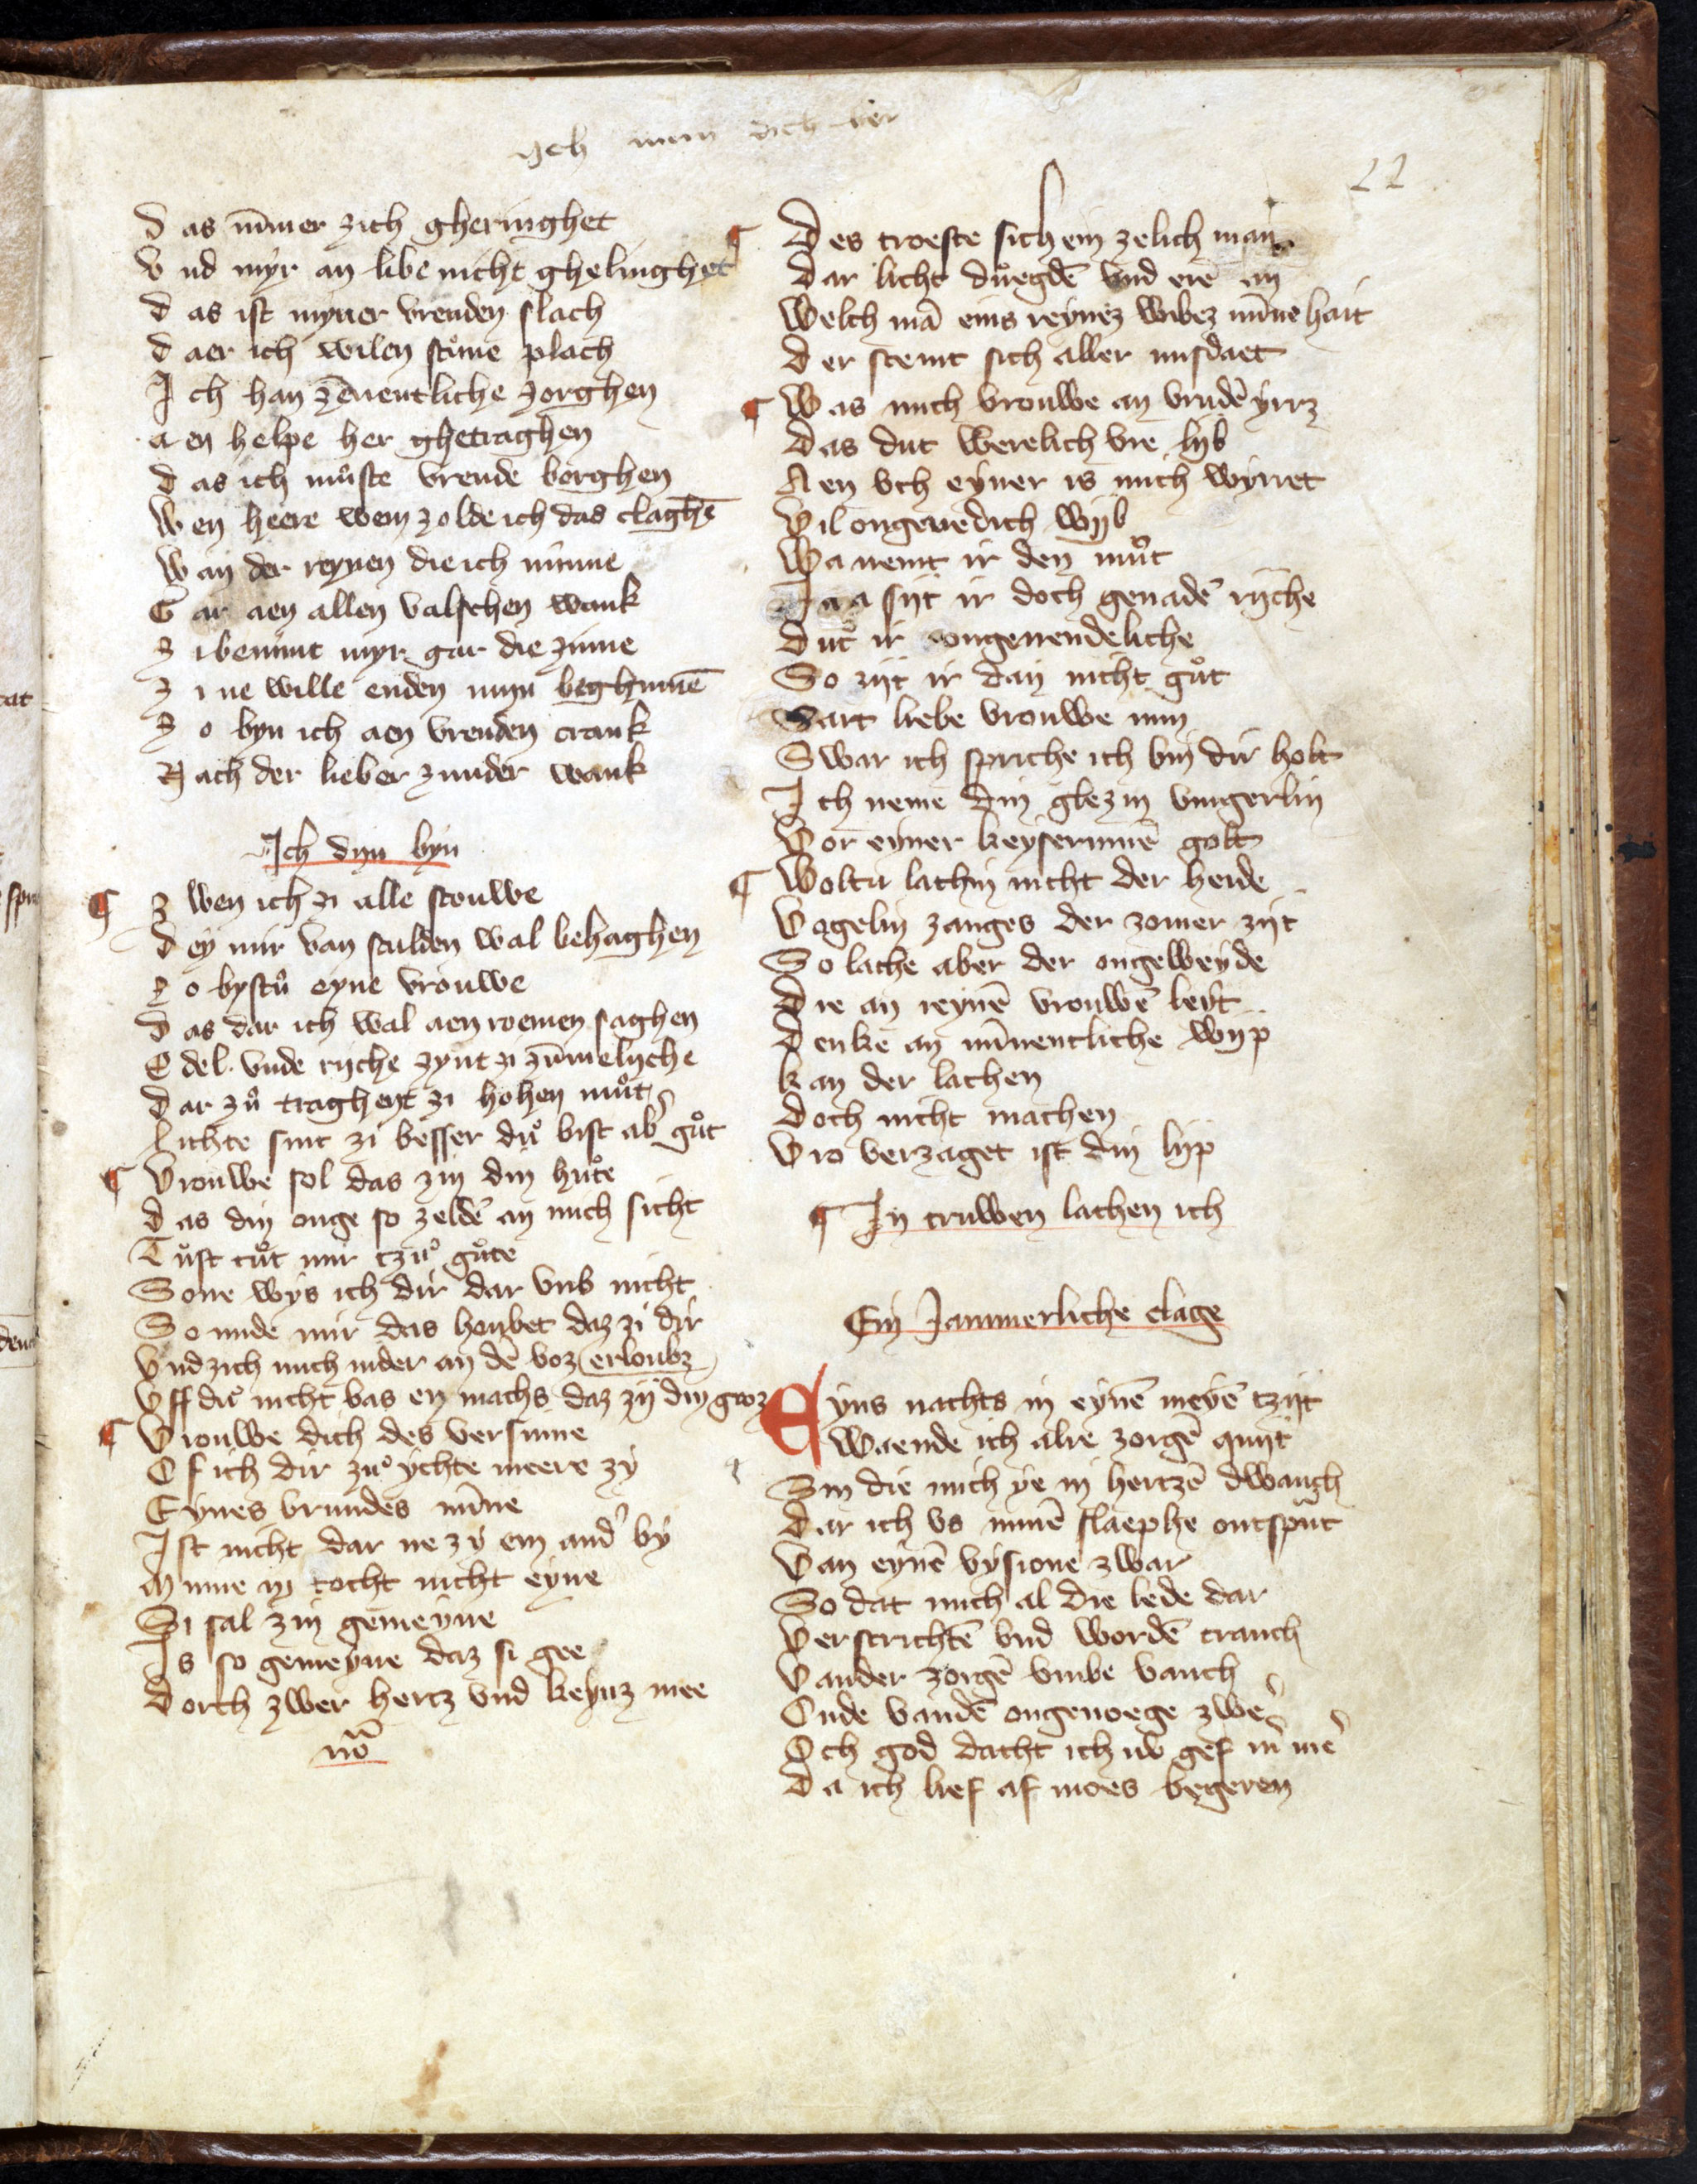 22
D as nūmer zich gheringhet
V nd myr an libe nicht ghelinghet
D as ist myner vrenden slach
D aer ich wilen stůme plach
I ch han zēnentliche zorghen
a en helpe her ghetraghen
D as ich můste vrende borghen
W en heere wem zolde ich das claghē
W an der reynen die ich minne
G ar aen allen valschen wank
Z i benimt myr gar die zinne
Z i ne wille enden myn beghinnē
Z o byn ich aen vrenden crank
N ach der lieber zunder wank
Ich dyn byn
¶ Z wen ich zi alle scouwe
D ey mir van sculden wal behaghen
Z o bystů eyne vrouwe
D as dar ich wal aen roemen saghen
E del vnde ryche zynt zi zūmelyche
D ar zů traghent zi hohen můt
Lichte sint zi besser dů bist ab' gůt
¶ Vrouwe sol das zin din hůte
D as din ouge so zeldē an mich sicht
Tůst tůt mir tzů gůte
Sone wys ich dir dar vmb nicht
So mide mir das houbet daz zi dir
Vnd zich mich nider an dē voz erloubz
Vff dů nicht bas en machs daz zy din groz
¶ Vrouwe dich des versinne
Of ich dir zů ychte meere zy
Eynes vrundes mīne
Ist nicht dar ne zy ein and' by
Minne in tocht nicht eyne
Si sal zin gemeyne
Is so gemeyne daz si gee
Dorch zwer hertz vnd keynz mee
nō
¶ D es troeste sich ein zelich man
Dar licht důegdē vnd erē an
Welch mā eins reynez wibez mīne hait
D er scemt sich aller misdaet
¶ Was mich vrouwe an vrudē yrrz
Das dut werelich vre lyb
Aen vch eyner is mich wyrret
Vil ongenedich wyb
Wa nemt ir den můt
Ia a syt ir doch genadē ryche
Důt ir ongenendeliche
So zyt ir dan nicht gůt
Zart liebe vrouwe min
Swar ich spriche ich bin dir holt
Ich neme din glezin vingerlin
Vor eyner keyserinnē golt
¶ Woltu lachin nicht der heide
Vogelin zanges der zomer zyt
So lache aber der ongeweyde
Die an reynē vrouwē leyt
Denke an mīnentliche wyp
Kan der lachen
Doch nicht machen
Vro verzaget ist din lyp
¶ In truwen lachen ich
Ein Jammerliche clage
Eyns nachts in eynē meyē tzyt
Waende ich alre zorgē quyt
Sin die mich ye in hertzē dwanch
Dar ich vs minē slaephe ontspranc
Van eynē vysione zwar
So dat mich al die lede dar
Verscrichtē vnd wordē cranch
Vander zorgē vmbe vanch
Onde vandē ongenoege zwe'
Och god dacht ich nv gef m' me'
Da ich lief af moes begeren